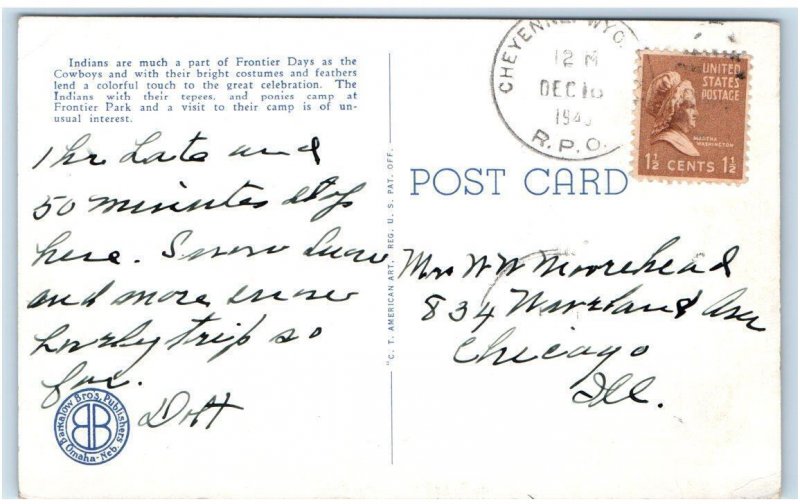 Indians are much a part of Frontier Days as the
Cowboys and with their bright costumes and feathers
lend a colorful touch to the great celebration. The
Indians with their tepees, and ponies camp at
Frontier Park and a visit to their camp is of un-
usual interest.
1 hr late and
50 minutes stop
here. Snow snow
and more snow
Lovely trip so
far.
Dott
Barkalow Bro's. Publishers
BB
Omaha - Neb.
"C. T. AMERICAN ART, REG. U. S. PAT. OFF.
POST CARD
CHEYENNE. WYO.
12 M
DEC
194
R.P.O.
UNITED
STATES
POSTAGE
MARTHA
WASHINGTON
1½ CENTS 1½
Mrs W W Moorehead
834 Waveland Ave
Chicago
Ill.